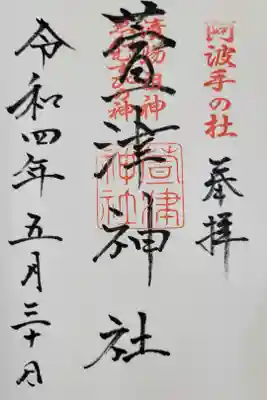 阿波手の杜
奉拝
漬物祖神
萱津神社
萱津
神社
令和四年五月三十日